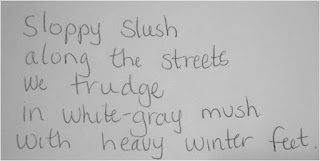 Sloppy Slush
along the streets
we trudge
in white-gray mush
with heavy winter feet.